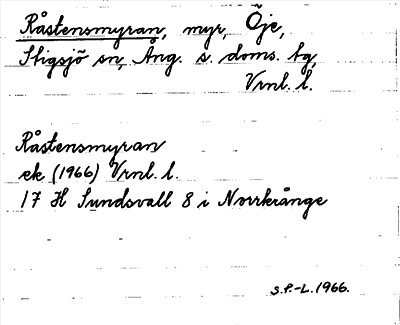 Råstensmyran, myr, Öje,
Stigsjö sn, Ång. s. doms. bg,
Vrnl. l.
Råstensmyran
ek (1966) Vrnl. l.
17 H Sundsvall 8 i Norrkrånge
S.P.-L. 1966.